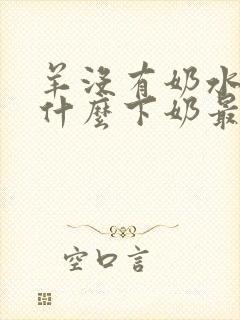 羊没有奶水
什麼下奶最
空口言